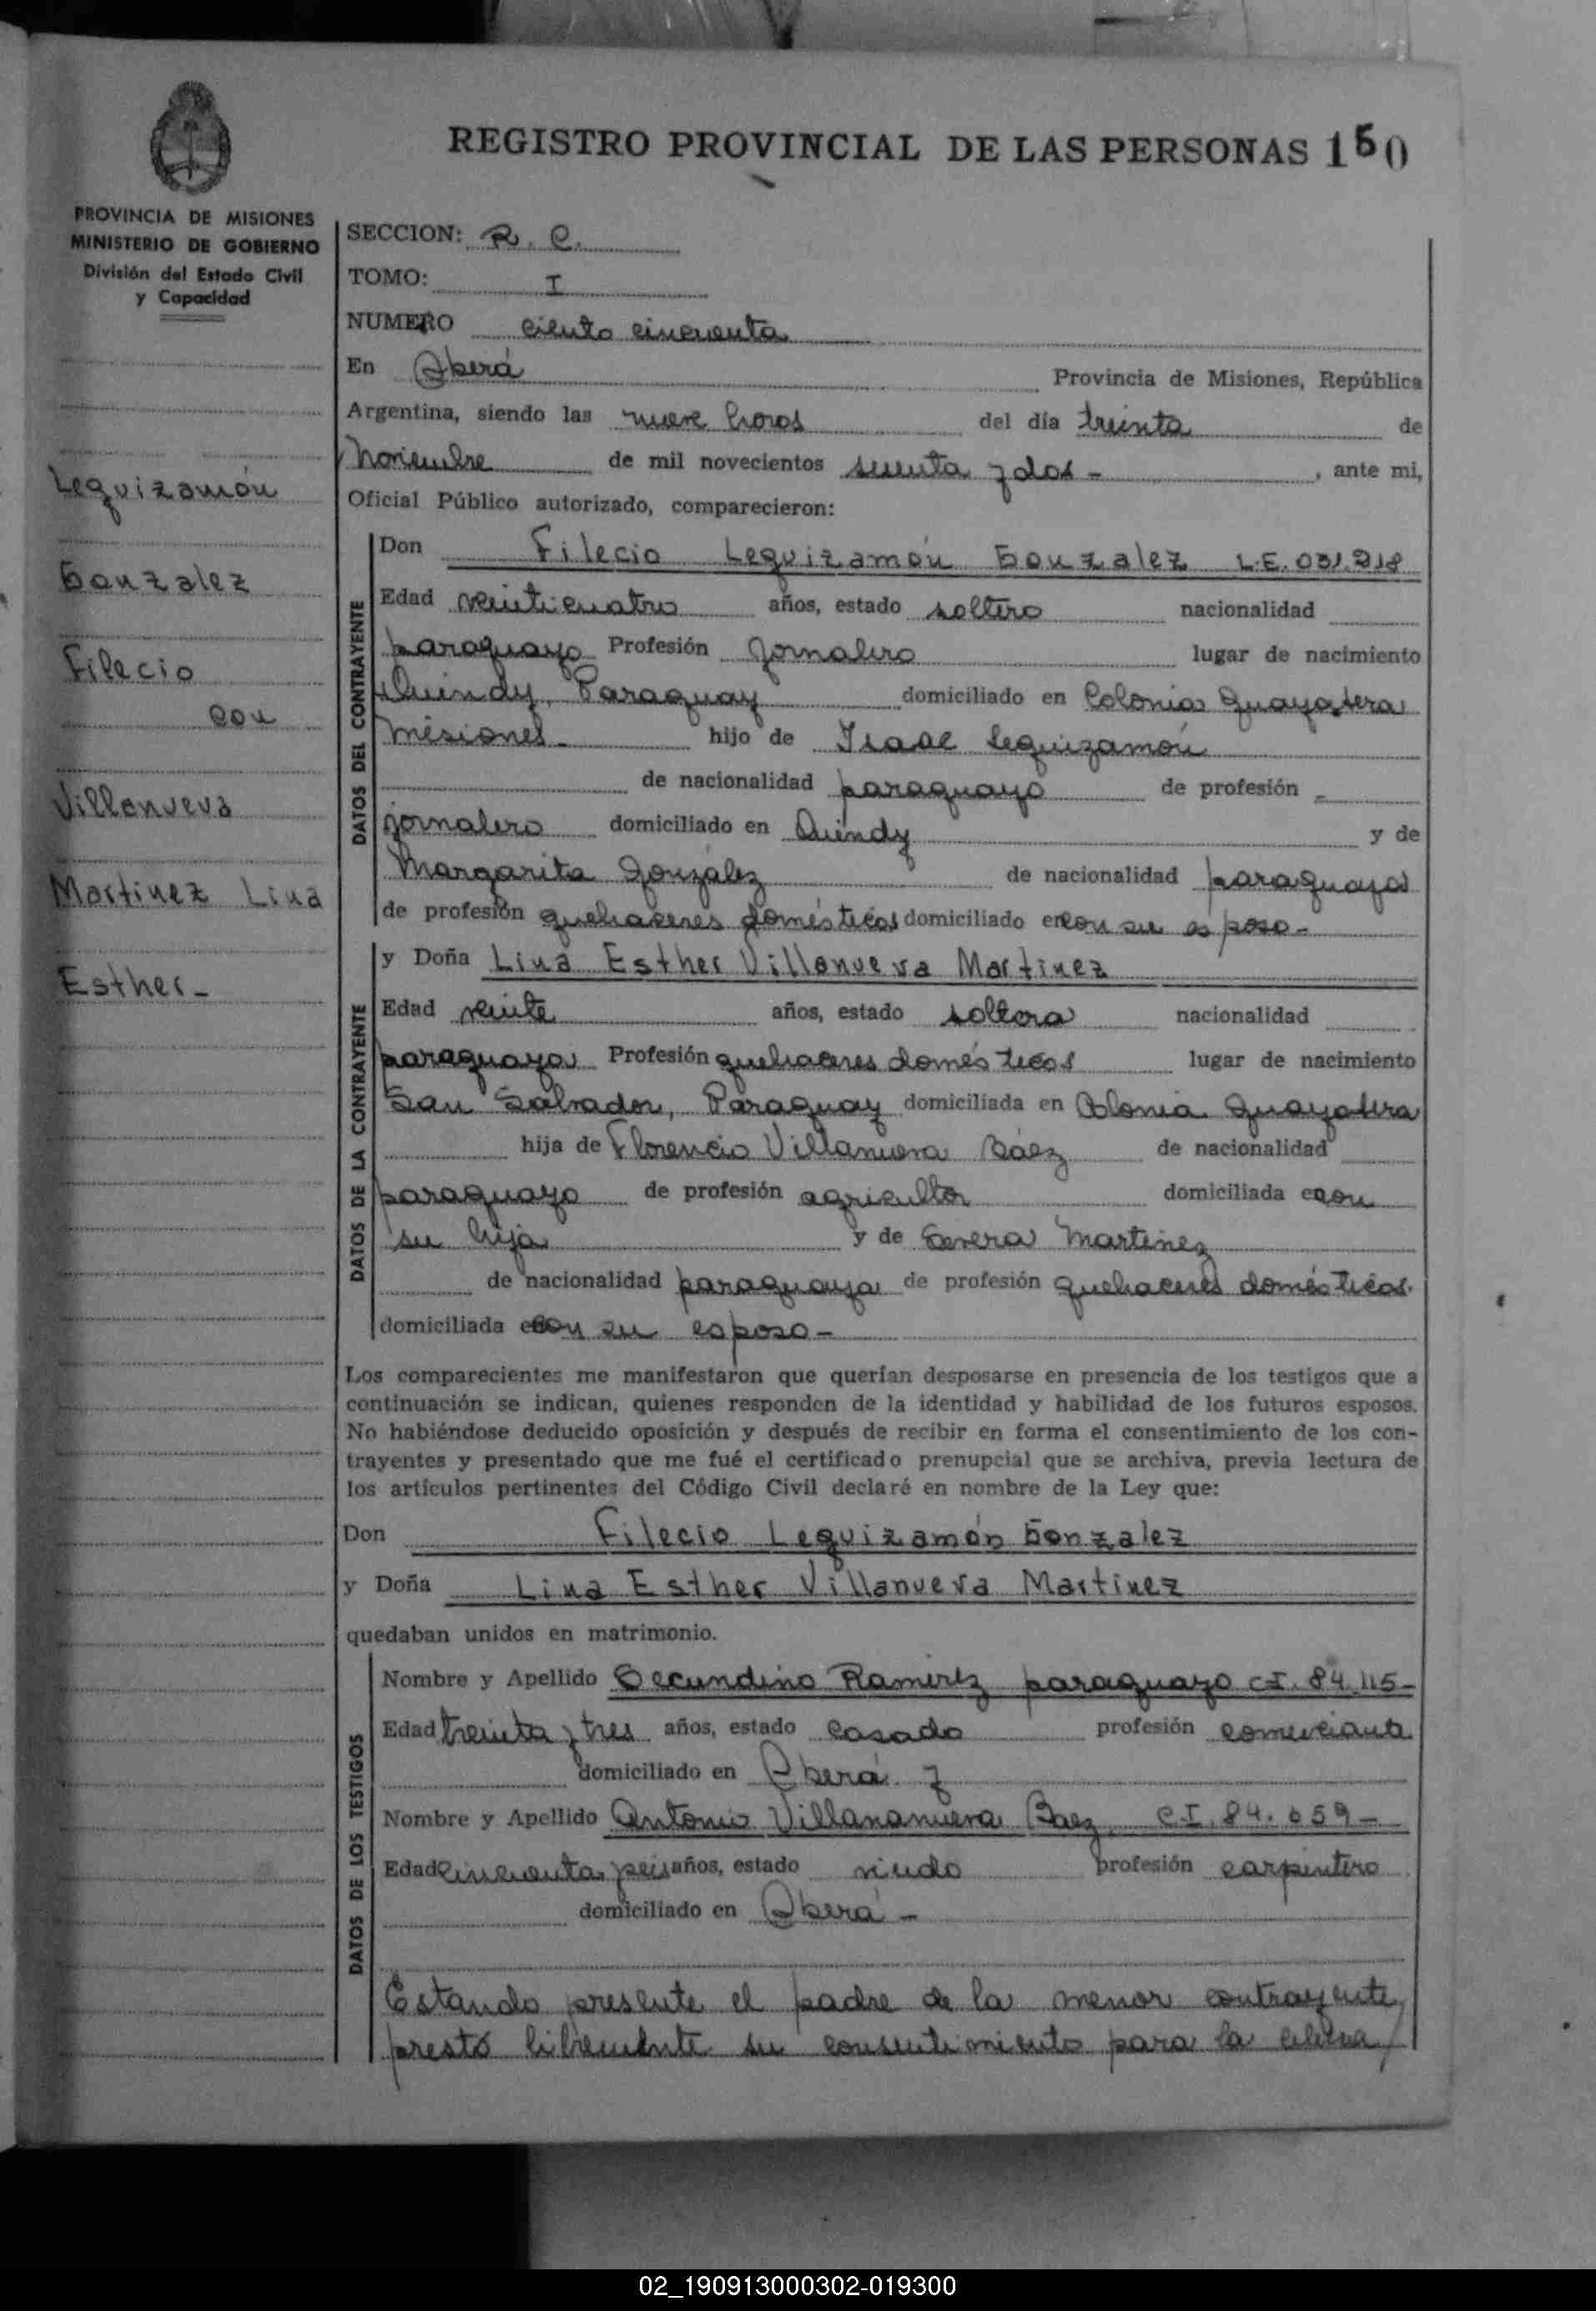 REGISTRO PROVINCIAL DE LAS PERSONAS 150
PROVINCIA DE MISIONES
MINISTERIO DE GOBIERNO
División del Estado Civil
y Capacidad
Leguizamón
Gonzalez
Filecio
con
Villanueva
Martinez Lina
Esther-
SECCION: R. C.
TOMO: I
NUMERO ciento cincuenta
En Oberá Provincia de Misiones, República
Argentina, siendo las nueve horas del día treinta de
Noviembre de mil novecientos sesenta y dos - , ante mi,
Oficial Público autorizado, comparecieron:
DATOS DEL CONTRAYENTE
Don Filecio Leguizamón Gonzalez L.E. 031.218
Edad veinticuatro años, estado soltero nacionalidad
paraguayo Profesión Jornalero lugar de nacimiento
Quindy, Paraguay domiciliado en Colonia Guayatera
Misiones- hijo de Isaac Leguizamón
de nacionalidad paraguayo de profesión -
jornalero domiciliado en Quindy y de
Margarita González de nacionalidad paraguaya
de profesión quehaceres domésticos domiciliado en con su esposo-
DATOS DE LA CONTRAYENTE
y Doña Lina Esther Villanueva Martinez
Edad veinte años, estado soltera nacionalidad
paraguaya Profesión quehaceres domésticos lugar de nacimiento
San Salvador, Paraguay domiciliada en Colonia Guayatera
hija de Florencio Villanueva Báez de nacionalidad
paraguayo de profesión agricultor domiciliada e con
su hija y de Severa Martinez
de nacionalidad paraguaya de profesión quehaceres domésticos.
domiciliada e con su esposo-
Los comparecientes me manifestaron que querían desposarse en presencia de los testigos que a
continuación se indican, quienes responden de la identidad y habilidad de los futuros esposos.
No habiéndose deducido oposición y después de recibir en forma el consentimiento de los con-
trayentes y presentado que me fué el certificado prenupcial que se archiva, previa lectura de
los artículos pertinentes del Código Civil declaré en nombre de la Ley que:
Don Filecio Leguizamón Gonzalez
y Doña Lina Esther Villanueva Martinez
quedaban unidos en matrimonio.
DATOS DE LOS TESTIGOS
Nombre y Apellido Secundino Ramirez paraguayo C.I. 84.115-
Edad treinta y tres años, estado casado profesión comerciante
domiciliado en Oberá y
Nombre y Apellido Antonio Villananueva Baez C.I. 84.059-
Edad cincuenta seis años, estado viudo profesión carpintero
domiciliado en Oberá -
Estando presente el padre de la menor contrayente
prestó libremente su consentimiento para la celebra
02_190913000302-019300